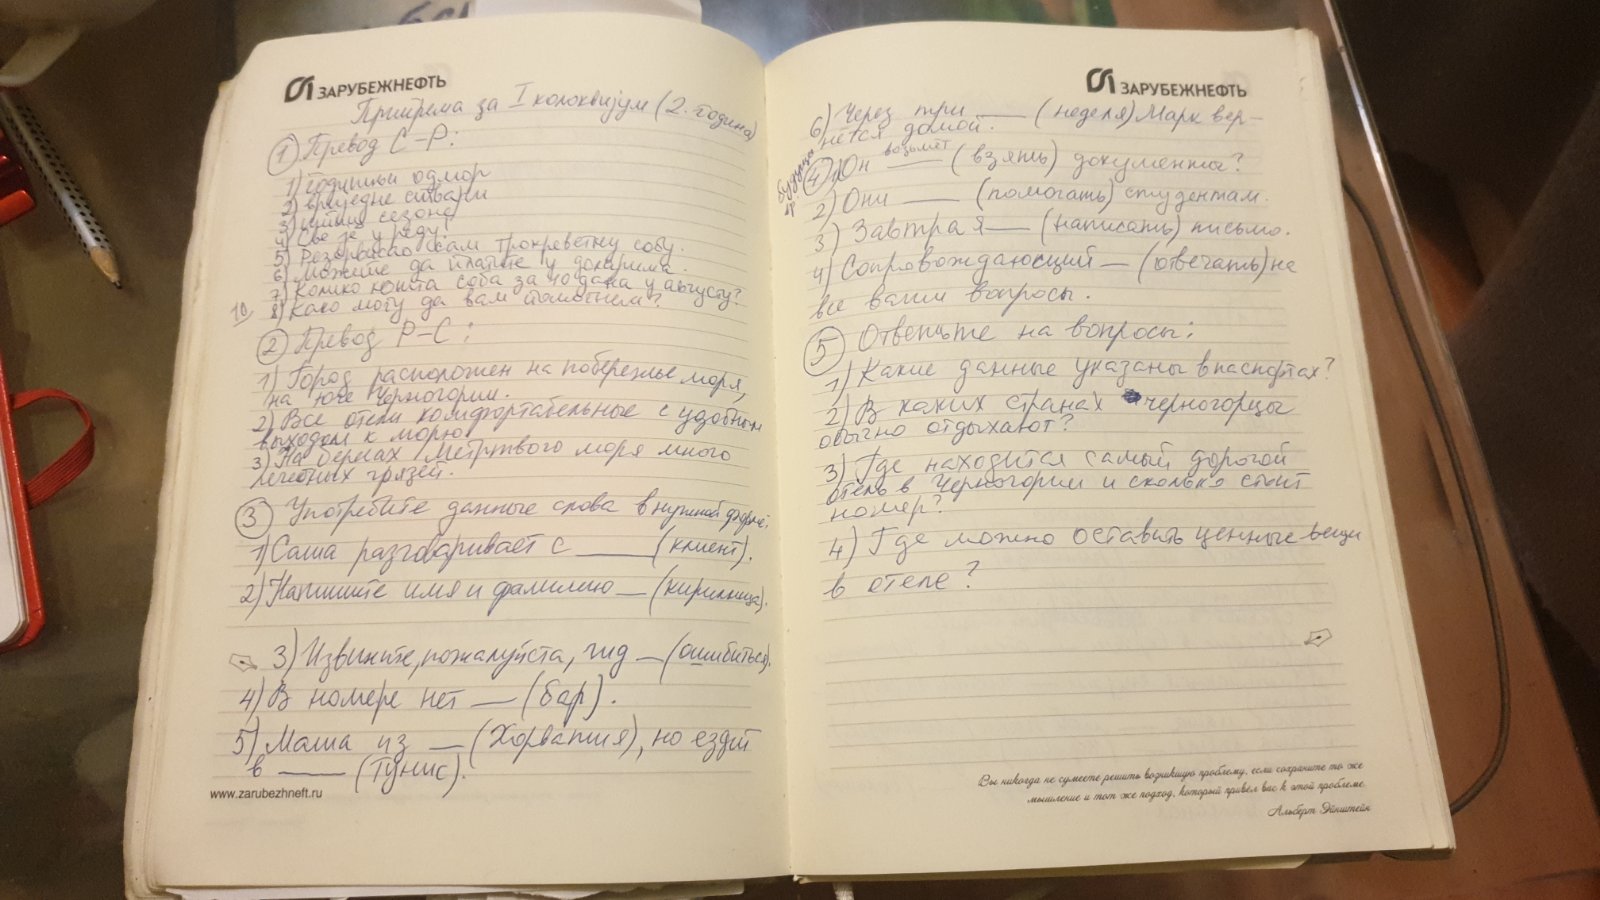 ЗАРУБЕЖНЕФТЬ
Припрема за I колоквијум (2. година)
1 Превод С-Р:
1) годишњи одмор
2) вриједне ствари
3) љетња сезона
4) Све је у реду!
5) Резервисао сам трокреветну собу.
6) Можете да платите у доларима.
7) Колико кошта соба за 10 дана у августу?
10. 8) Како могу да вам помогнем?
2 Превод Р-С:
1) Город расположен на побережье моря,
на юге Черногории.
2) Все отели комфортабельные с удобным
выходом к морю
3) На берегах Мёртвого моря много
лечебных грязей.
3 Употребите данные слова в нужной форме:
1) Саша разговаривает с ____ (клиент).
2) Напишите имя и фамилию __ (кириллица).
3) Извините, пожалуйста, гид __ (ошибиться).
4) В номере нет __ (бар).
5) Маша из __ (Хорватия), но ездит
в ____ (Тунис).
www.zarubezhneft.ru
ЗАРУБЕЖНЕФТЬ
6) Через три ____ (неделя) Марк вер-
нётся домой.
будущее вр. 4 1) Он возьмёт (взять) документы?
2) Они ____ (помогать) студентам.
3) Завтра я ___ (написать) письмо.
4) Сопровождающий __ (отвечать) на
все ваши вопросы.
5 Ответьте на вопросы:
1) Какие данные указаны в паспортах?
2) В каких странах черногорцы
обычно отдыхают?
3) Где находится самый дорогой
отель в Черногории и сколько стоит
номер?
4) Где можно оставить ценные вещи
в отеле?
Вы никогда не сумеете решить возникшую проблему, если сохраните то же
мышление и тот же подход, который привел вас к этой проблеме
Альберт Эйнштейн